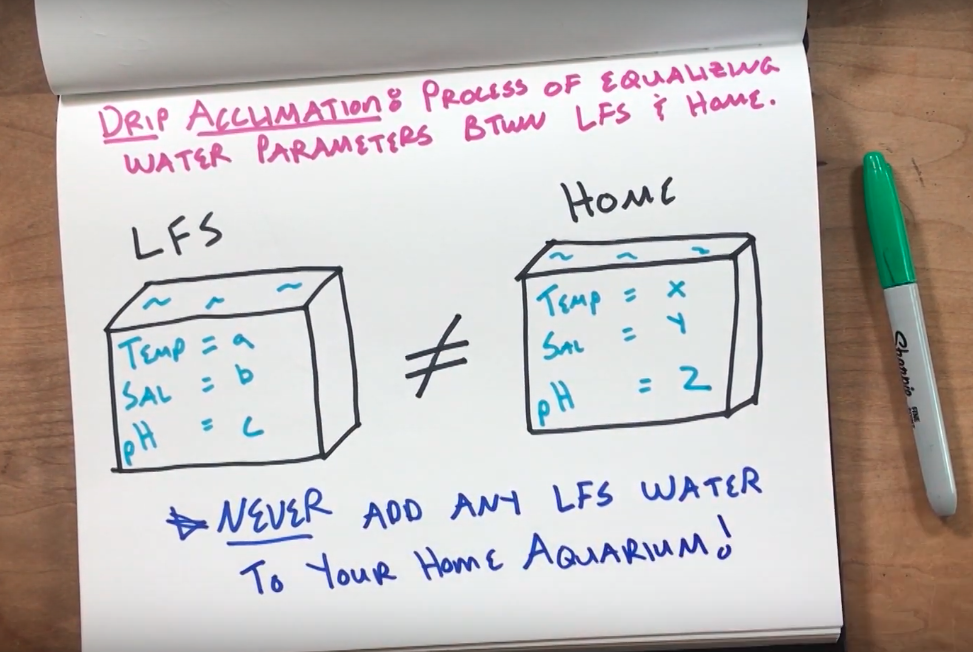 DRIP ACCLIMATION: PROCESS OF EQUALIZING
WATER PARAMETERS BTWN LFS & HOME.
LFS
TEMP = a
SAL = b
pH = c
≠
HOME
TEMP = X
SAL = Y
pH = Z
NEVER ADD ANY LFS WATER
TO YOUR HOME AQUARIUM!
Sharpie
FINE